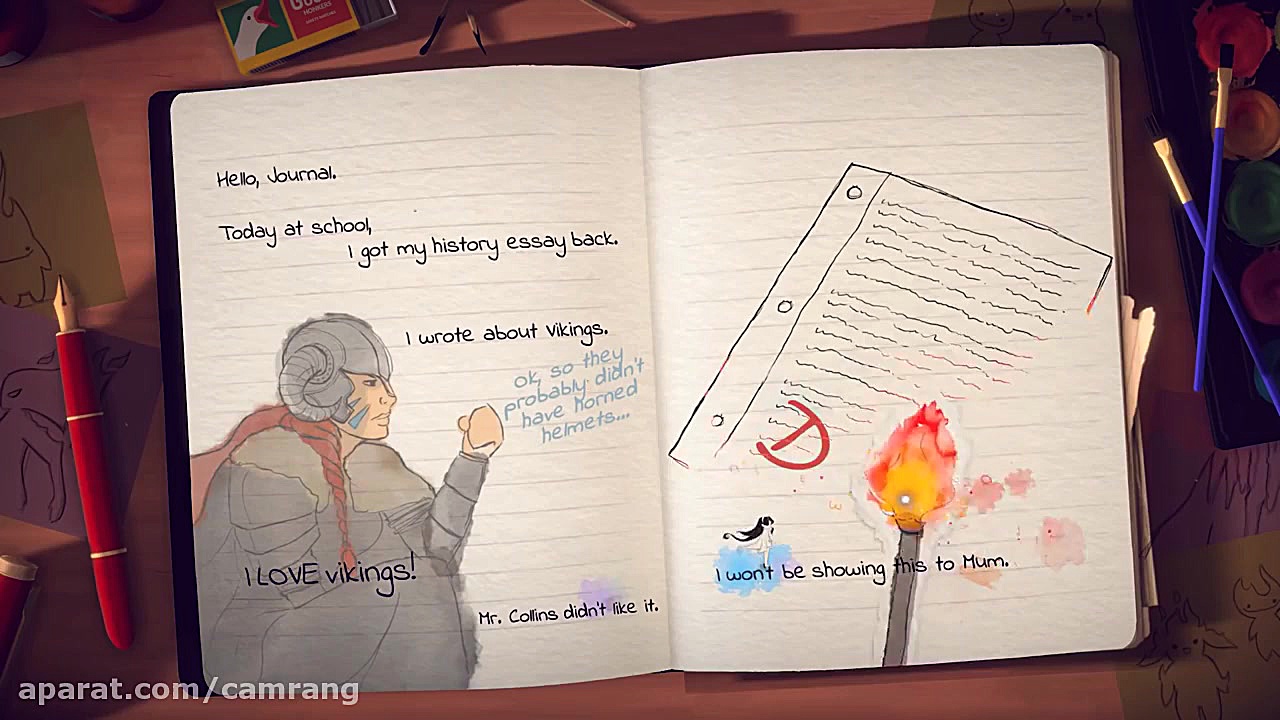 HONKERS
Hello, Journal.
Today at school,
I got my history essay back.
I wrote about vikings.
ok, so they
probably didn't
have horned
helmets...
I LOVE vikings!
Mr. Collins didn't like it.
D
I won't be showing this to Mum.
aparat.com/camrang